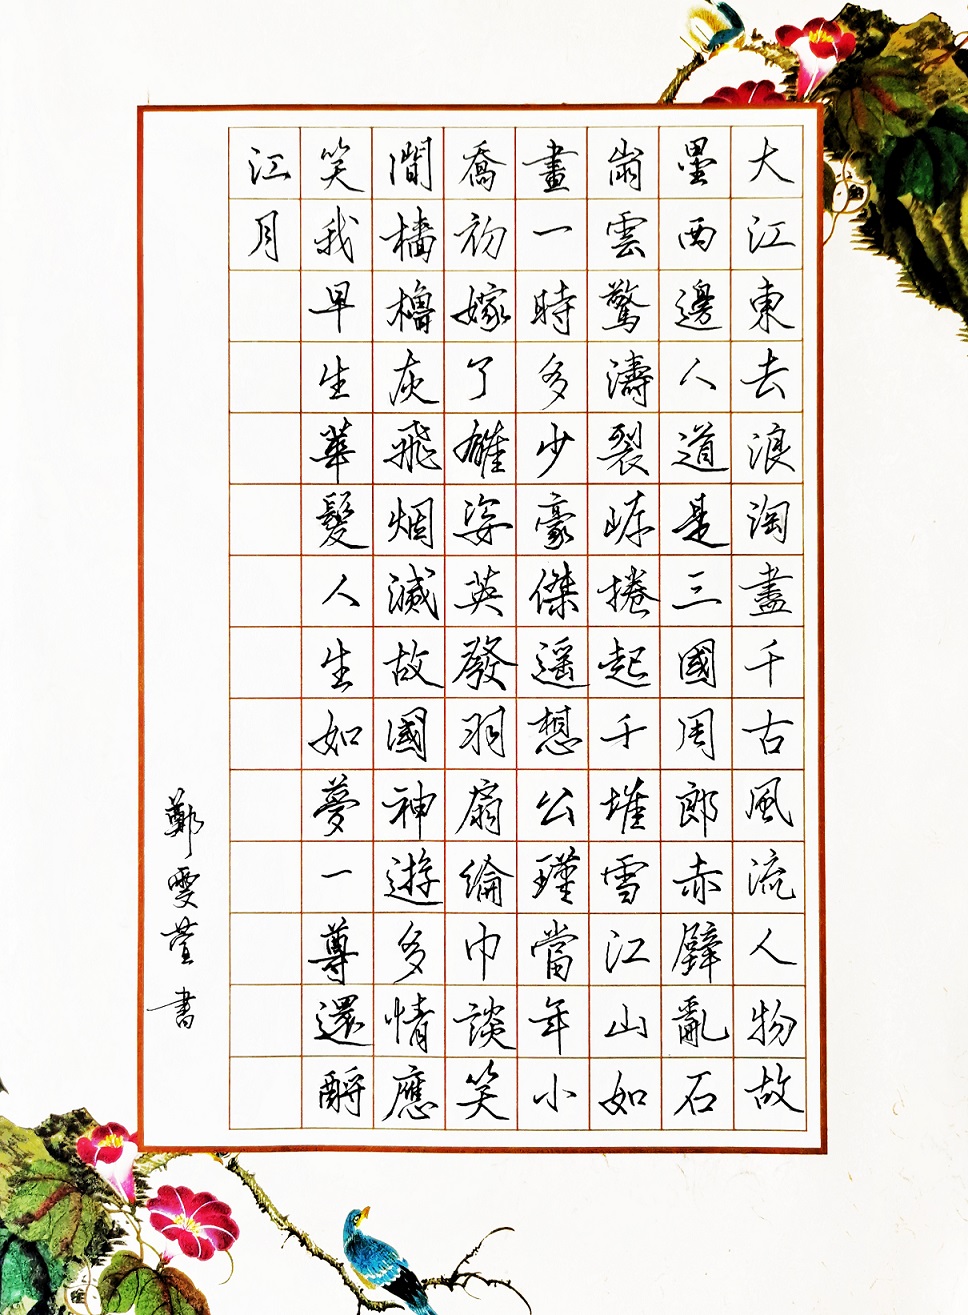 大江東去浪淘盡千古風流人物故
壘西邊人道是三國周郎赤壁亂石
崩雲驚濤裂岸捲起千堆雪江山如
畫一時多少豪傑遥想公瑾當年小
喬初嫁了雄姿英發羽扇綸巾談笑
間檣櫓灰飛烟滅故國神遊多情應
笑我早生華髮人生如夢一尊還酹
江月
鄭雯萱書